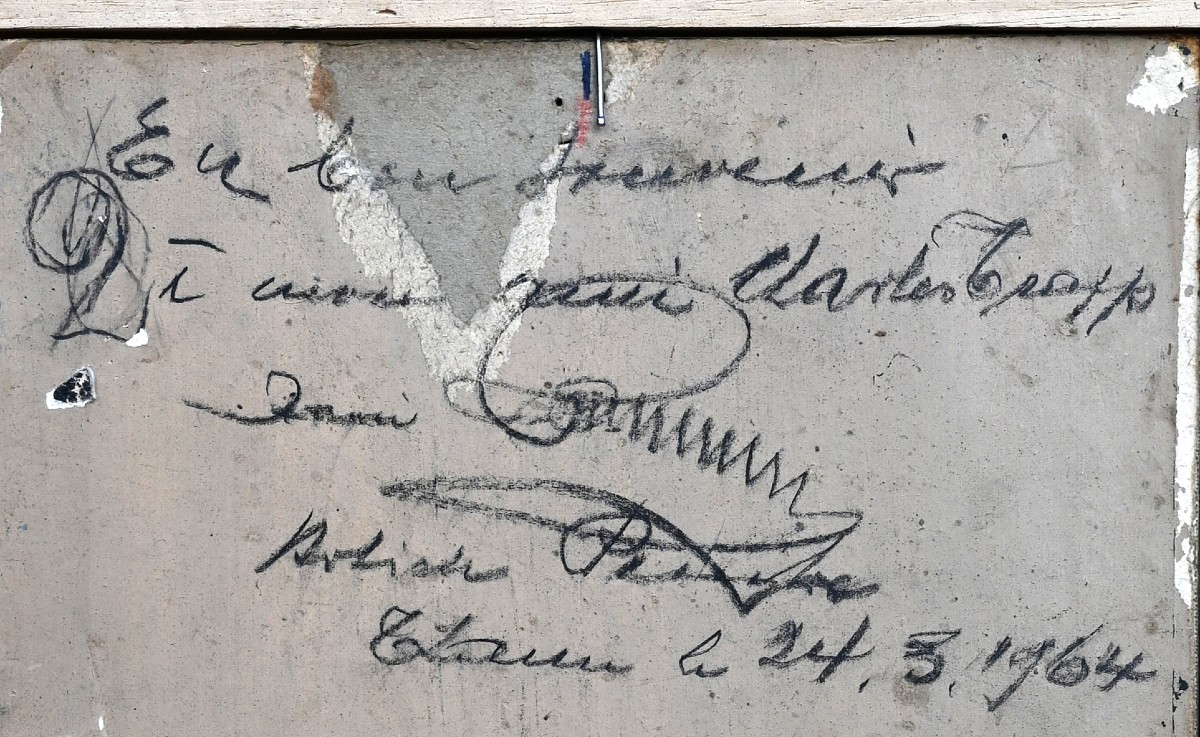 En bon souvenir
mon ami Charles Trapp
Artiste Peintre
Thann le 24.3.1964